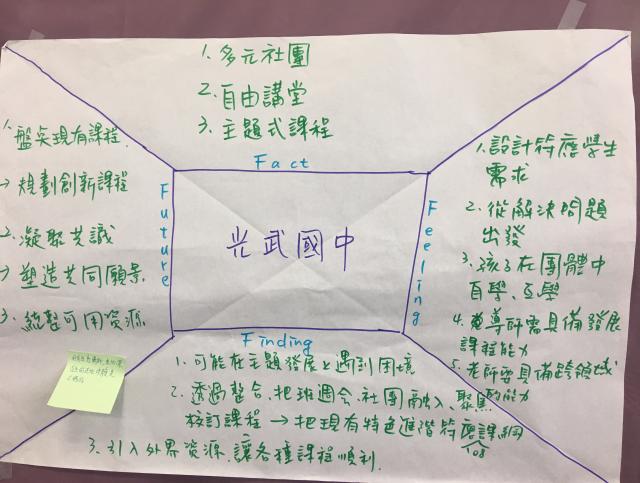 1. 多元社團
2. 自由講堂
3. 主題式課程
Fact
1. 盤點現有課程.
→ 規劃創新課程
2. 凝聚共識
→ 塑造共同願景
3. 統整可用資源
Future
光武國中
Feeling
1. 設計符應學生
需求
2. 從解決問題
出發
3. 孩子在團體中
自學、互學
4. 導師需具備發展
課程能力
5. 老師要具備跨領域
的能力
Finding
1. 可能在主題發展上遇到困境
2. 透過整合、把班週會、社團融入、聚焦
校訂課程 → 把現有特色進階符應課綱
108
3. 引入外界資源、讓各種課程順利.